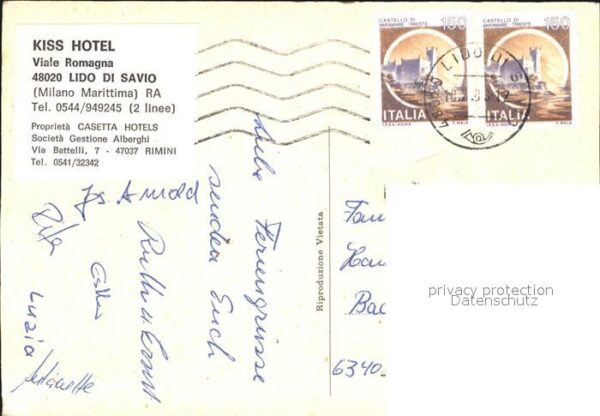 KISS HOTEL
Viale Romagna
48020 LIDO DI SAVIO
(Milano Marittima) RA
Tel. 0544/949245 (2 linee)
Proprietà CASETTA HOTELS
Società Gestione Alberghi
Via Battelli, 7 - 47037 RIMINI
Tel. 0541/32342
CASTELLO DI
MIRAMARE TRIESTE
150
ITALIA
I.P.Z.S. ROMA
T. MELE
CASTELLO DI
MIRAMARE TRIESTE
150
ITALIA
I.P.Z.S. ROMA
T. MELE
LIDO DI S
Liebe Feriengrüsse
senden Euch
Ruth u. Ernst
Arnold
Rita
Luzia
Antoinette
Riproduzione Vietata
Fam
Han
Bad
6340
privacy protection
Datenschutz